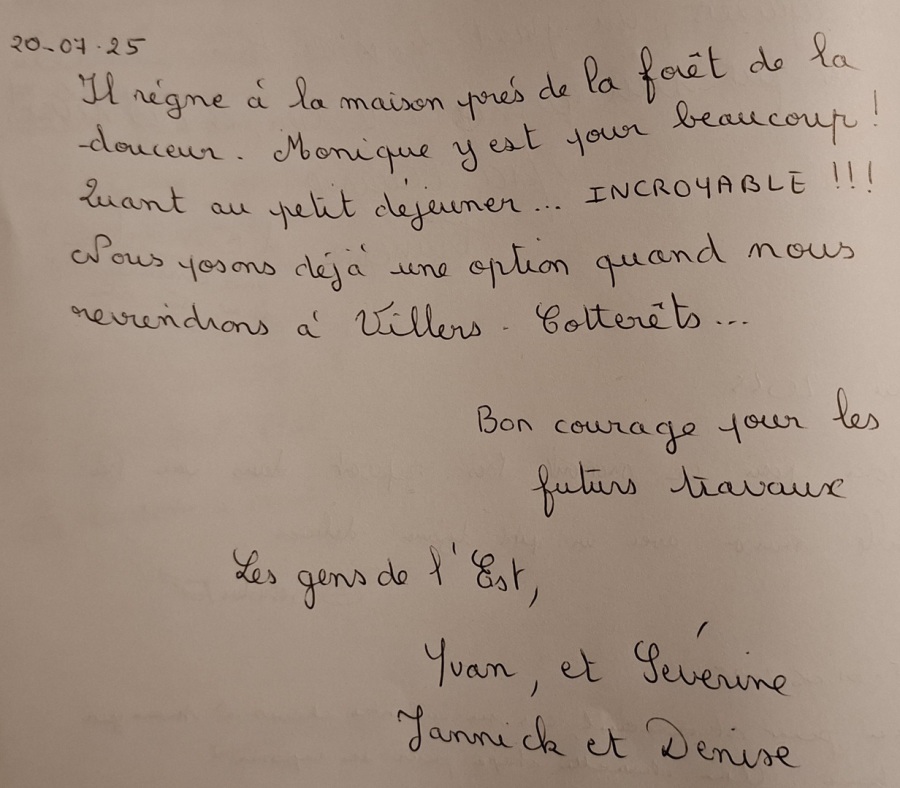 20-07-25
Il règne à la maison près de la forêt de la
douceur. Monique y est pour beaucoup !
Quant au petit déjeuner... INCROYABLE !!!
Nous posons déjà une option quand nous
reviendrons à Villers-Cotterêts...
Bon courage pour les
futurs travaux
Les gens de l'Est,
Yvan, et Séverine
Yannick et Denise